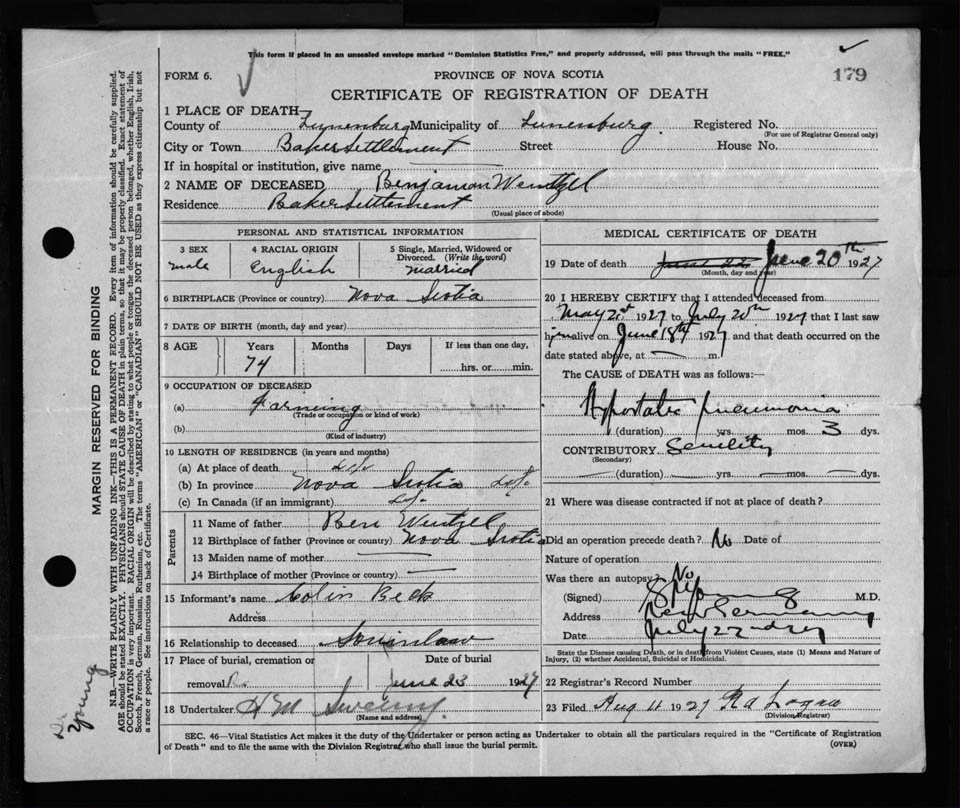 This form if placed in an unsealed envelope marked "Dominion Statistics Free," and properly addressed, will pass through the mails "FREE."
FORM 6.
PROVINCE OF NOVA SCOTIA
179
CERTIFICATE OF REGISTRATION OF DEATH
1 PLACE OF DEATH
County of Lunenburg Municipality of Lunenburg Registered No.
(For use of Registrar General only)
City or Town Baker Settlement Street House No.
If in hospital or institution, give name
2 NAME OF DECEASED Benjamon Wentzel
Residence Baker Settlement
(Usual place of abode)
PERSONAL AND STATISTICAL INFORMATION
3 SEX
male
4 RACIAL ORIGIN
English
5 Single, Married, Widowed or Divorced. (Write the word)
married
6 BIRTHPLACE (Province or country) Nova Scotia
7 DATE OF BIRTH (month, day and year)
8 AGE Years Months Days If less than one day,
74 hrs. or min.
9 OCCUPATION OF DECEASED
(a) Farming
(Trade or occupation or kind of work)
(b)
(Kind of industry)
10 LENGTH OF RESIDENCE (in years and months)
(a) At place of death
(b) In province Nova Scotia
(c) In Canada (if an immigrant)
Parents
11 Name of father Ben Wentzel
12 Birthplace of father (Province or country) Nova Scotia
13 Maiden name of mother
14 Birthplace of mother (Province or country)
15 Informant's name Colin Beck
Address
16 Relationship to deceased Soninlaw
17 Place of burial, cremation or Date of burial
removal June 23 1927
18 Undertaker H M Sweeny
(Name and address)
MEDICAL CERTIFICATE OF DEATH
19 Date of death June 22 June 20th 1927
(Month, day and year)
20 I HEREBY CERTIFY that I attended deceased from
May 21st 1927 to July 20th 1927 that I last saw
him alive on June 18th 1927 and that death occurred on the
date stated above, at m.
The CAUSE of DEATH was as follows:—
Hypostatic pneumonia
(duration) yrs. mos. 3 dys.
CONTRIBUTORY Senility
(Secondary)
(duration) yrs. mos. dys.
21 Where was disease contracted if not at place of death?
Did an operation precede death? No Date of
Nature of operation
Was there an autopsy? No
(Signed) Young M.D.
Address New Germany
Date July 22nd 1927
State the Disease causing Death, or in death from Violent Causes, state (1) Means and Nature of
Injury, (2) whether Accidental, Suicidal or Homicidal.
22 Registrar's Record Number
23 Filed Aug 4 1927
(Division Registrar)
SEC. 46—Vital Statistics Act makes it the duty of the Undertaker or person acting as Undertaker to obtain all the particulars required in the "Certificate of Registration
of Death" and to file the same with the Division Registrar who shall issue the burial permit.
(OVER)
MARGIN RESERVED FOR BINDING
N.B.—WRITE PLAINLY WITH UNFADING INK—THIS IS A PERMANENT RECORD. Every item of information should be carefully supplied.
AGE should be stated EXACTLY. PHYSICIANS should STATE CAUSE OF DEATH in plain terms, so that it may be properly classified. Exact statement of
OCCUPATION is very important. RACIAL ORIGIN will be described by stating to what people or tongue the deceased person belonged, whether English, Irish,
Scotch, French, German, Russian, Ruthenian, etc. The terms "AMERICAN" or "CANADIAN" SHOULD NOT BE USED as they express citizenship but not
a race or people. See instructions on back of Certificate.
Dr
Young